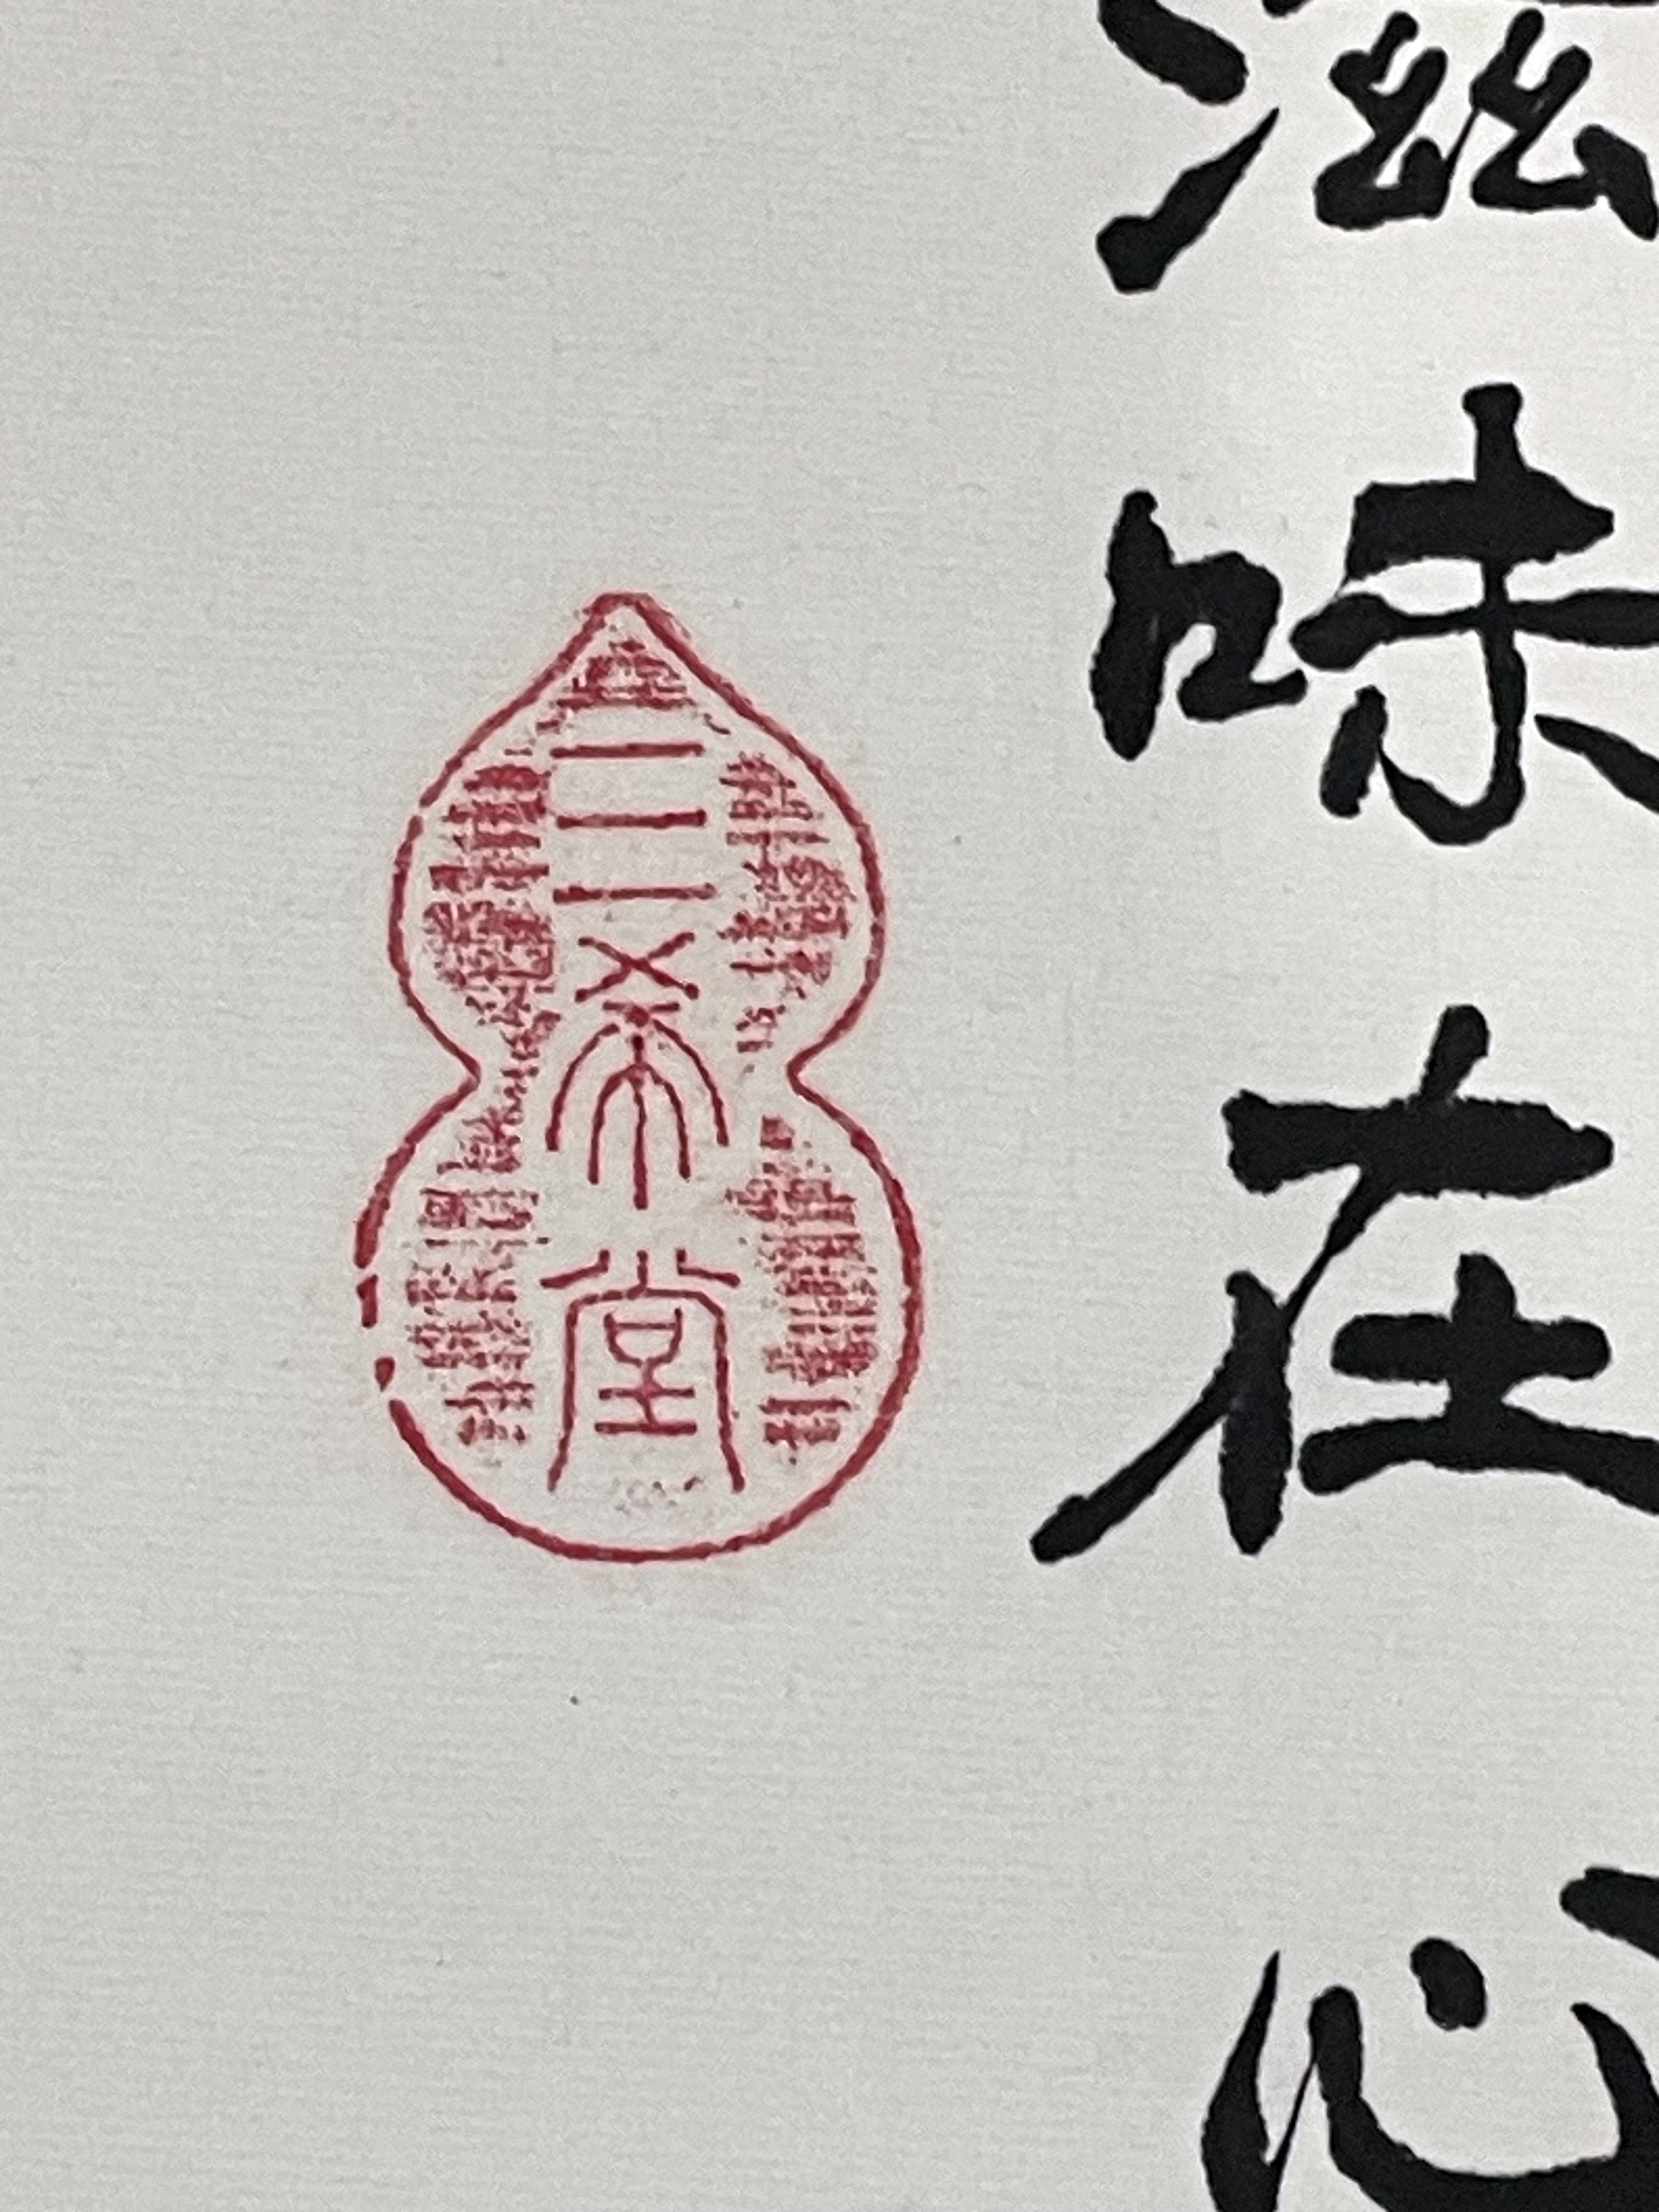 滋味在心
三希堂